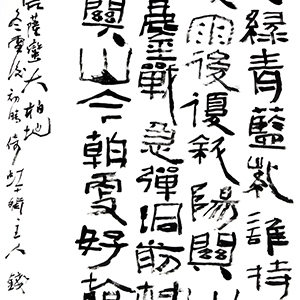 綠青藍紫誰持
雨後復斜陽關山
鏖戰急彈洞前村
關山今朝更好看
菩薩蠻大柏地
冬雪後初晴倚虹主人錢